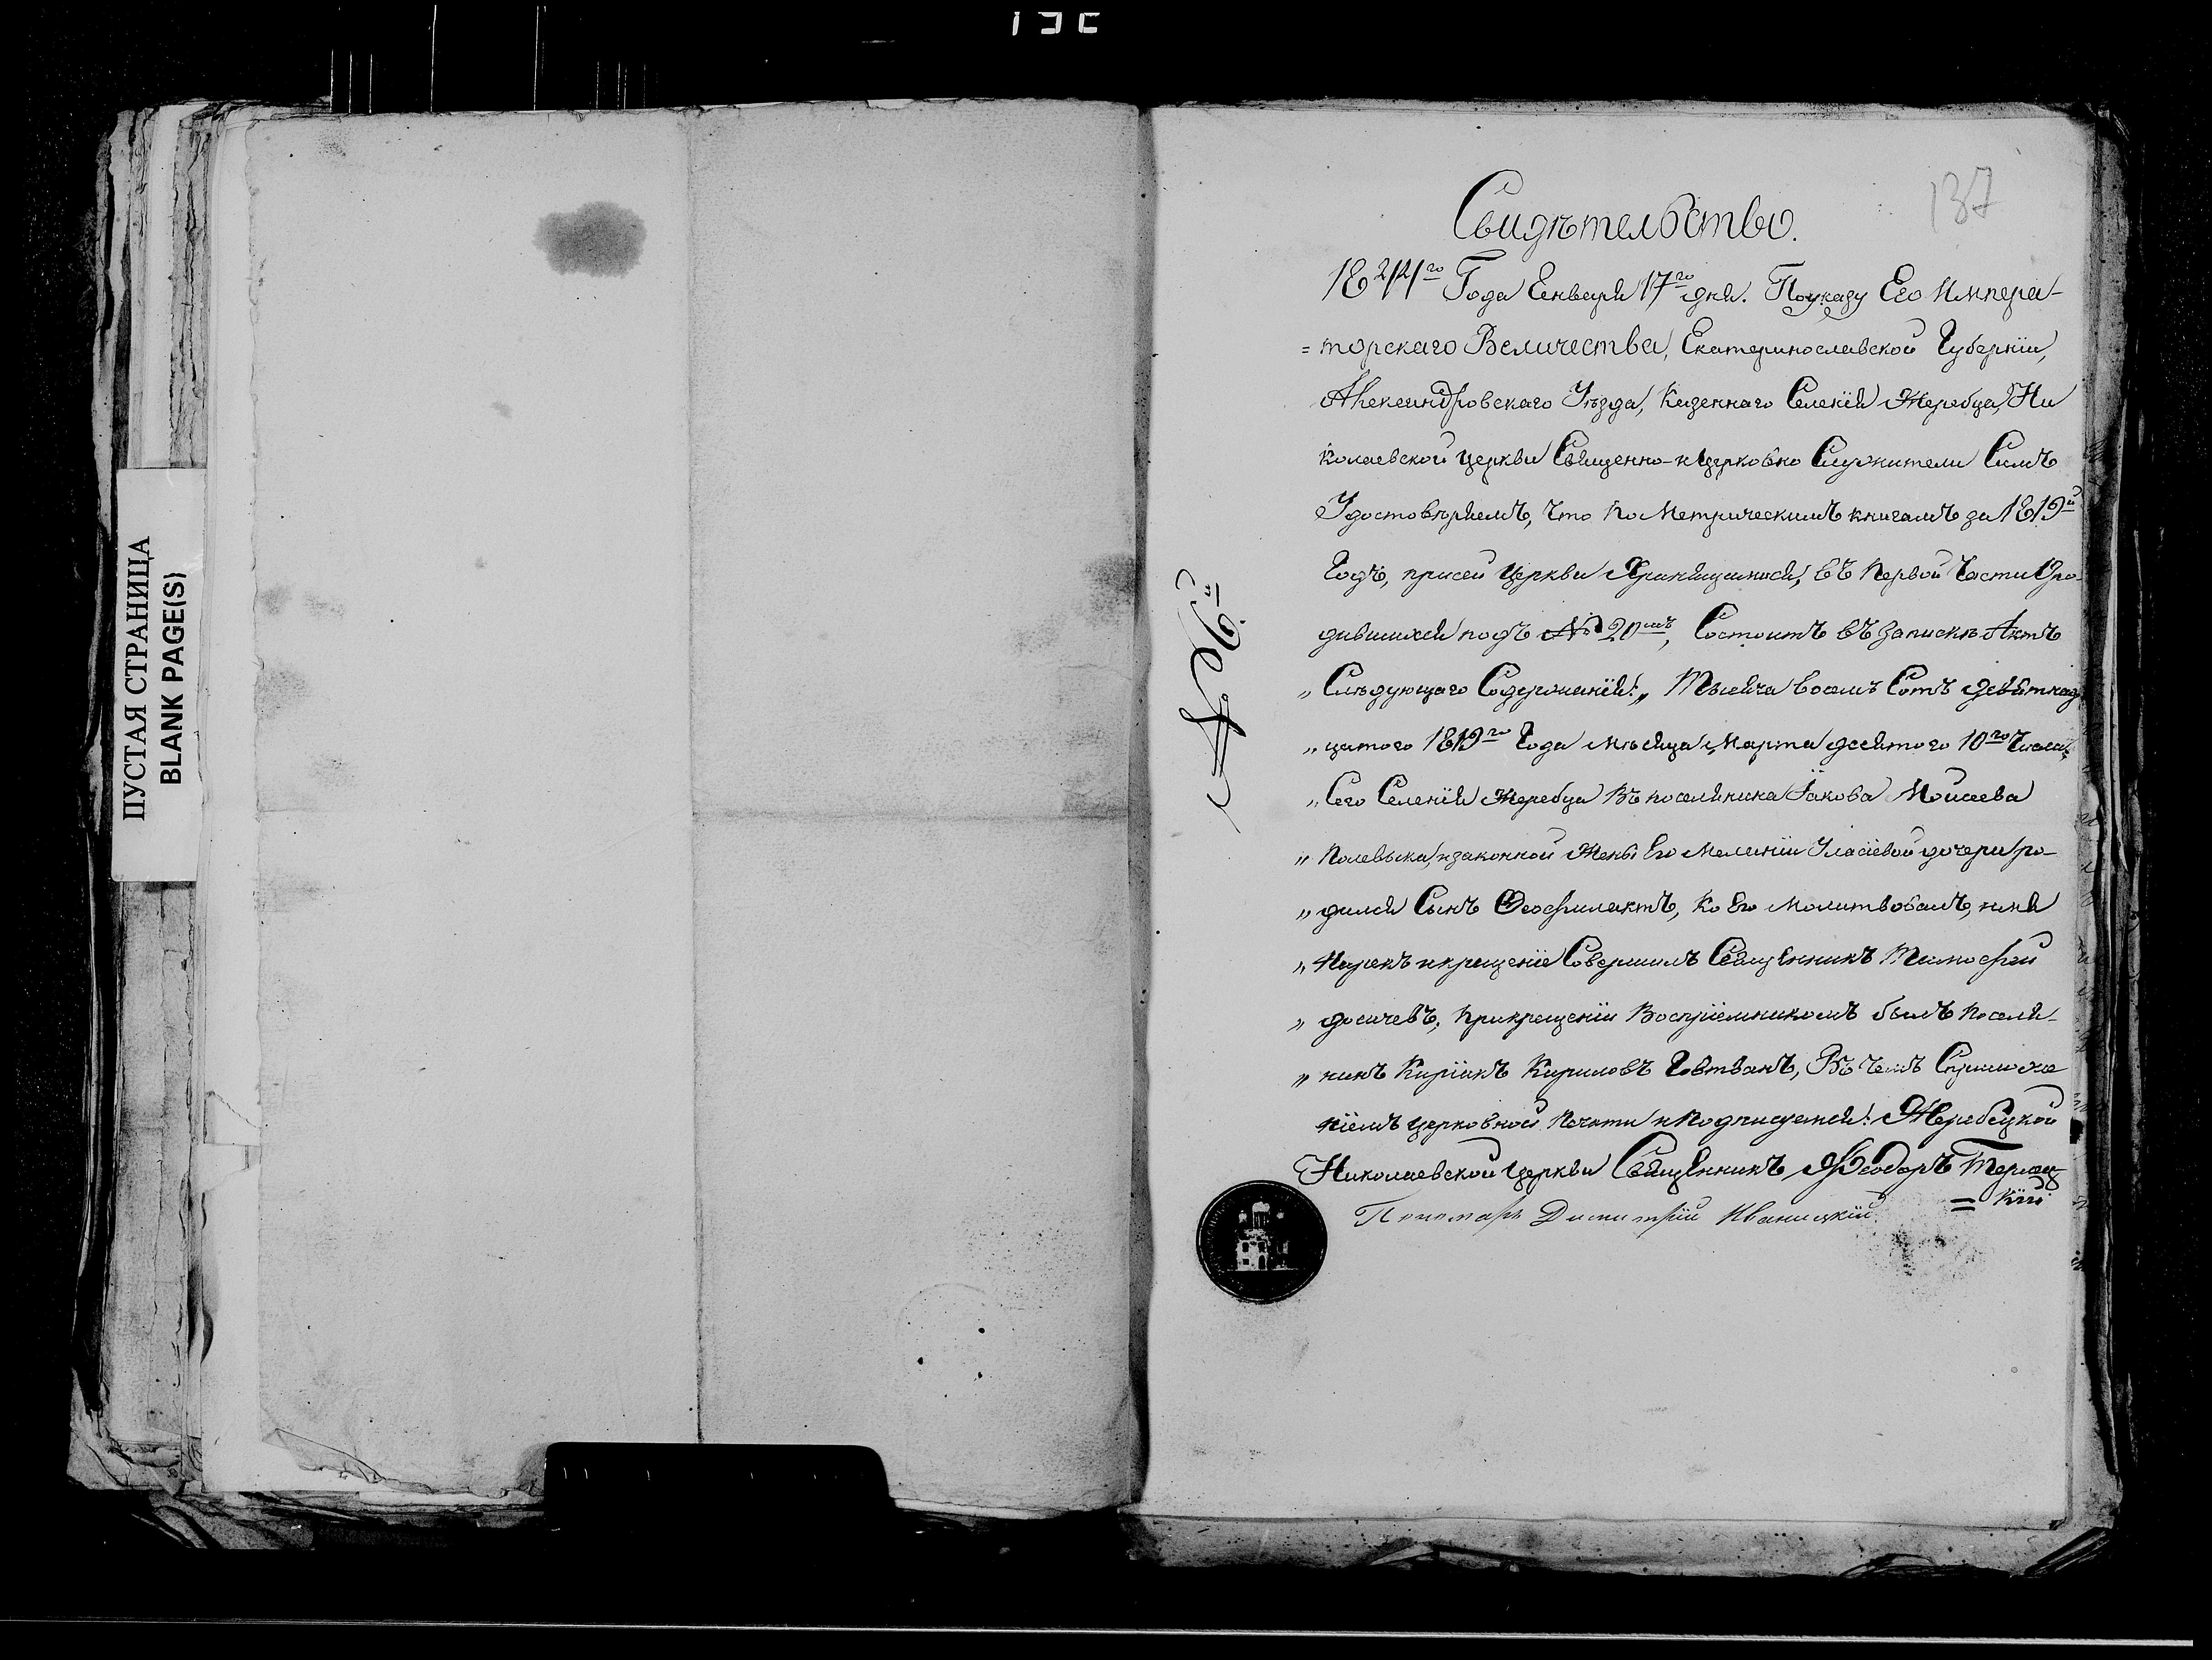 ПУСТАЯ СТРАНИЦА
BLANK PAGE(S)
137
Свидѣтельство.
Года Енваря 17го дня. По указу Его Импера-
=торскаго Величества, Екатеринославской Губерніи,
Александровскаго Уѣзда, Казеннаго Селенія Жеребца, Ни
колаевской церкви Священно-и церковно Служители Симъ
Удостовѣряемъ, что по Метрическимъ книгамъ за 1819й
Годъ, при сей церкви Хранящимися, въ Первой Части О ро-
дившихся подъ № 20мъ, Состоитъ въ Запискѣ Актъ
„ Слѣдующаго Содержанія: „ Тысяча восемъ Сотъ девятнад
„ цатого 1819го Года Мѣсяца Марта десятого 10го Числа,
„ Сего Селенія Жеребца Въ поселянина Іакова Моисеева
„ и законной Жены Его Меланіи Уласіевой дочери ро-
„ дился Сынъ Феофилактъ, Ко Его молитвовалъ, имя
„ Нарекъ и крещеніе Совершилъ Священникъ Тимофей
„ при крещеніи Воспріемникомъ былъ Поселя-
„ нинъ Киріакъ Кириловъ Въ чемъ С приложе
ніемъ церковной Печати и Подписуемся: Жеребецкой
Николаевской Церкви Священникъ Феодоръ
= кій
Пономарь Димитрій Иваницкій.